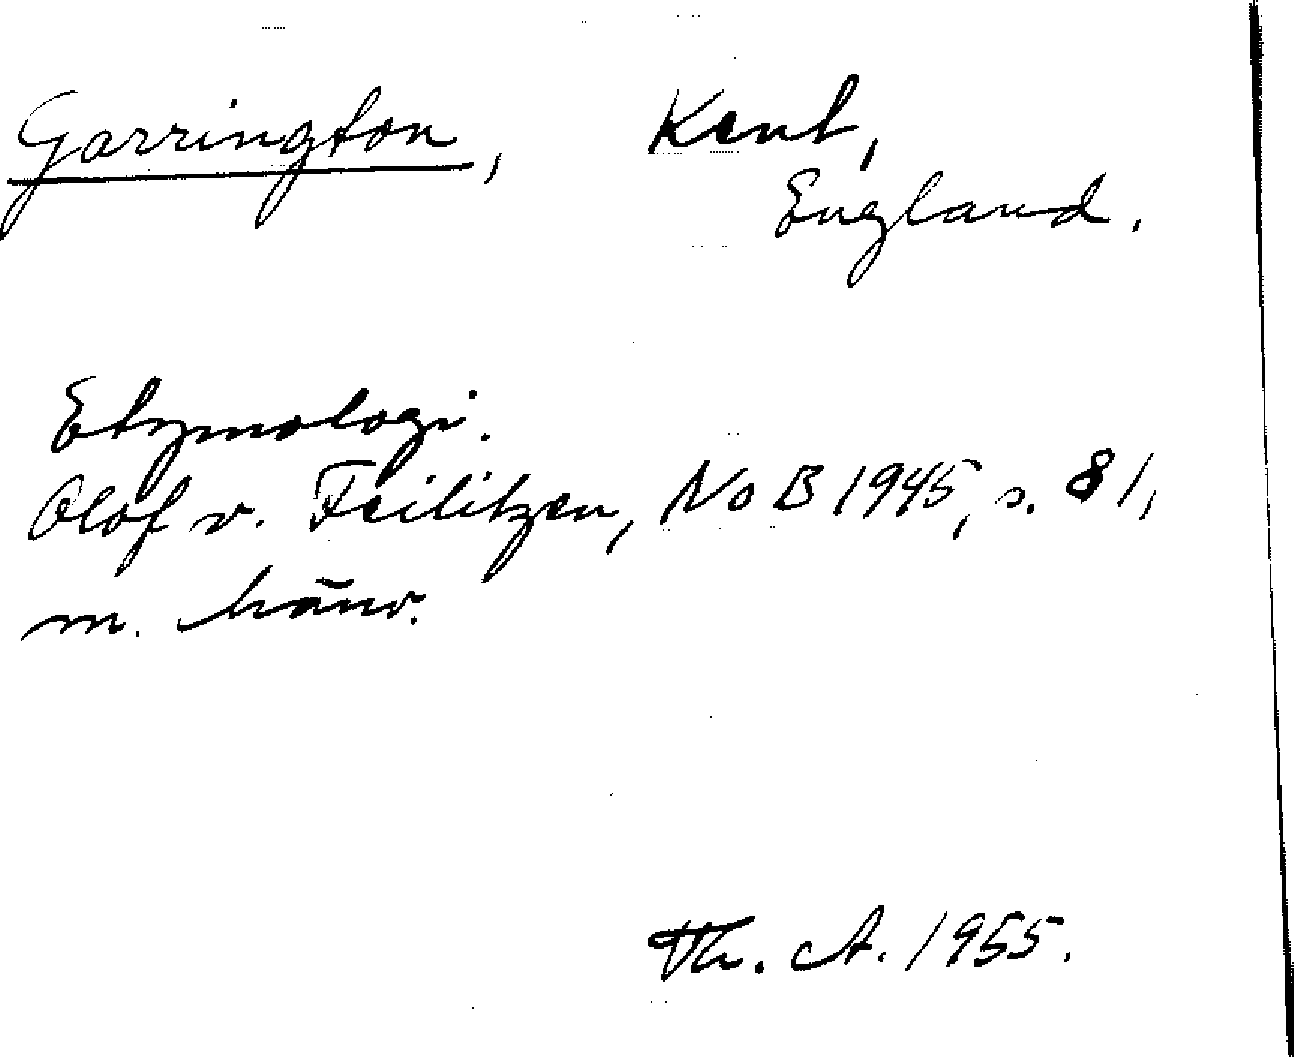 Garrington, Kent,
England.
Etymologi.
Olof v. Feilitzen, NoB 1945, s. 81,
m. hänv.
Th. A. 1955.